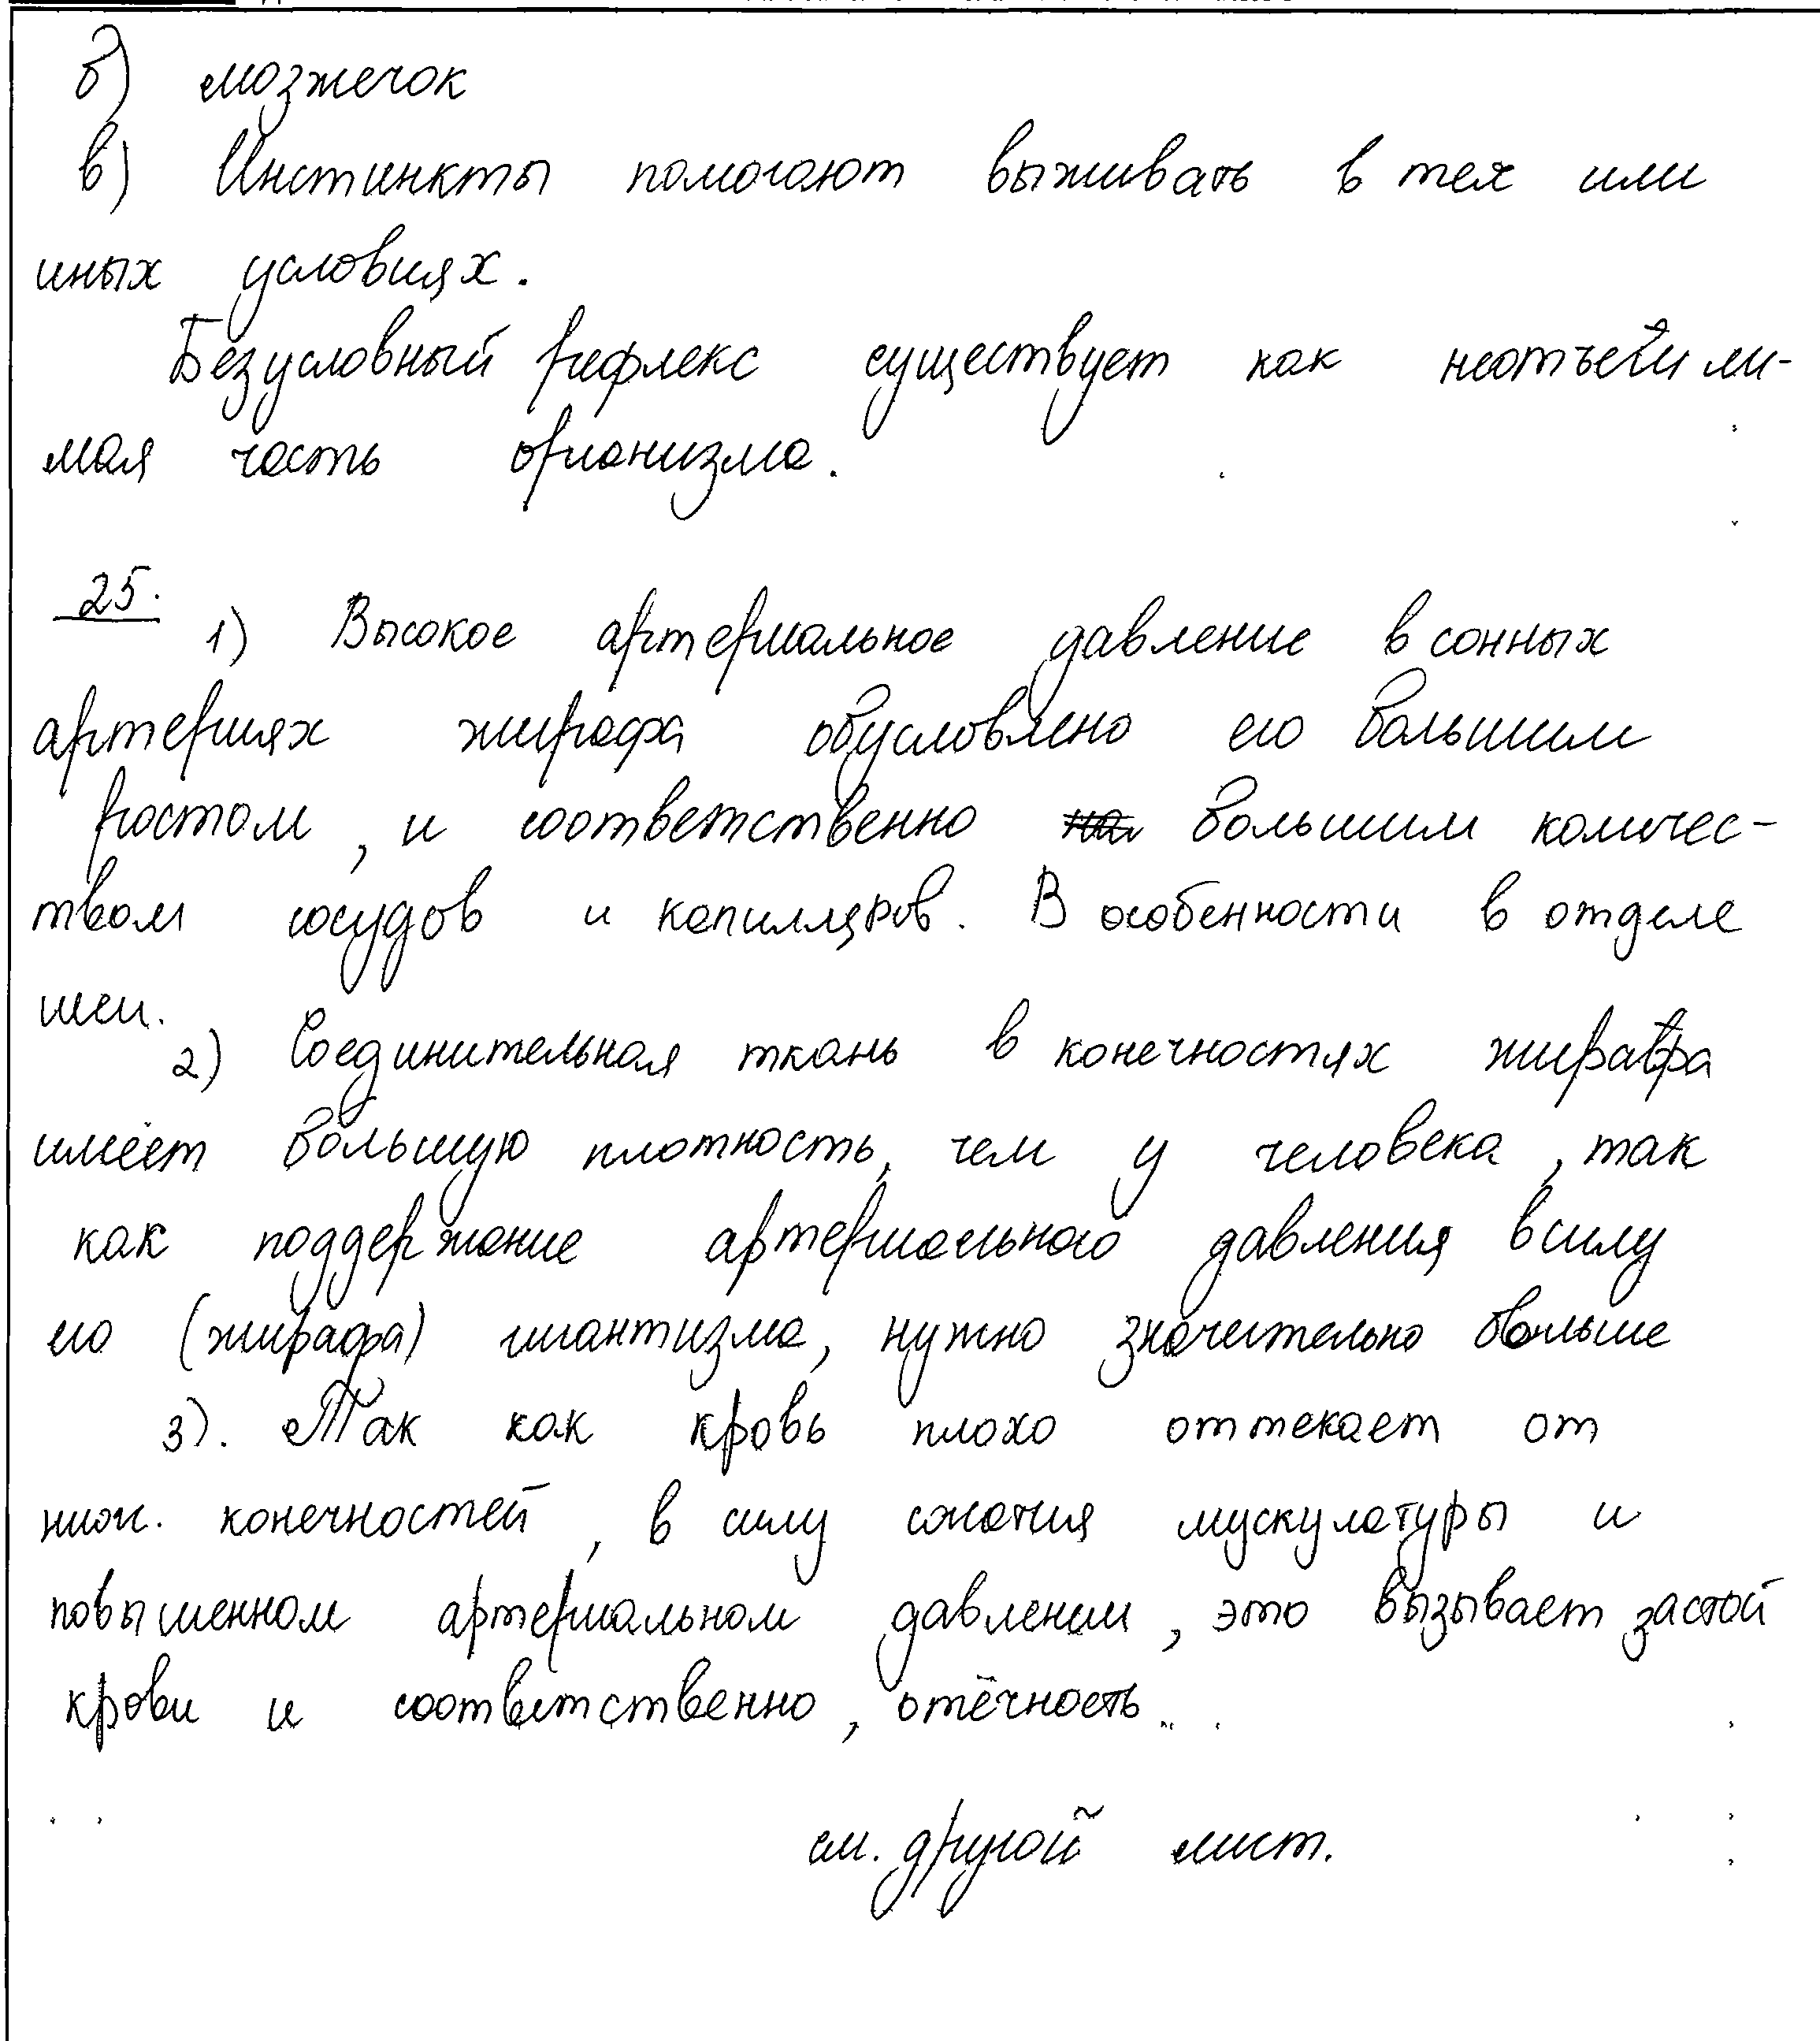 б) мозжечок
в) Инстинкты помогают выживать в тех или
иных условиях.
Безусловный рефлекс существует как
мая часть организма.
25.
1) Высокое артериальное давление в сонных
артериях жирафа обусловлено его большим
ростом, и соответственно большим количес-
твом сосудов и капилляров. В особенности в отделе
шеи.
2) Соединительная ткань в конечностях жирафа
имеет большую плотность, чем у человека, так
как поддержание артериального давления в силу
его (жирафа) гигантизма, нужно значительно больше
3). Так как кровь плохо оттекает от
ниж. конечностей, в силу сжатия мускулатуры и
повышенном артериальном давлении, это вызывает застой
крови и соответственно, отёчность.
см. другой лист.